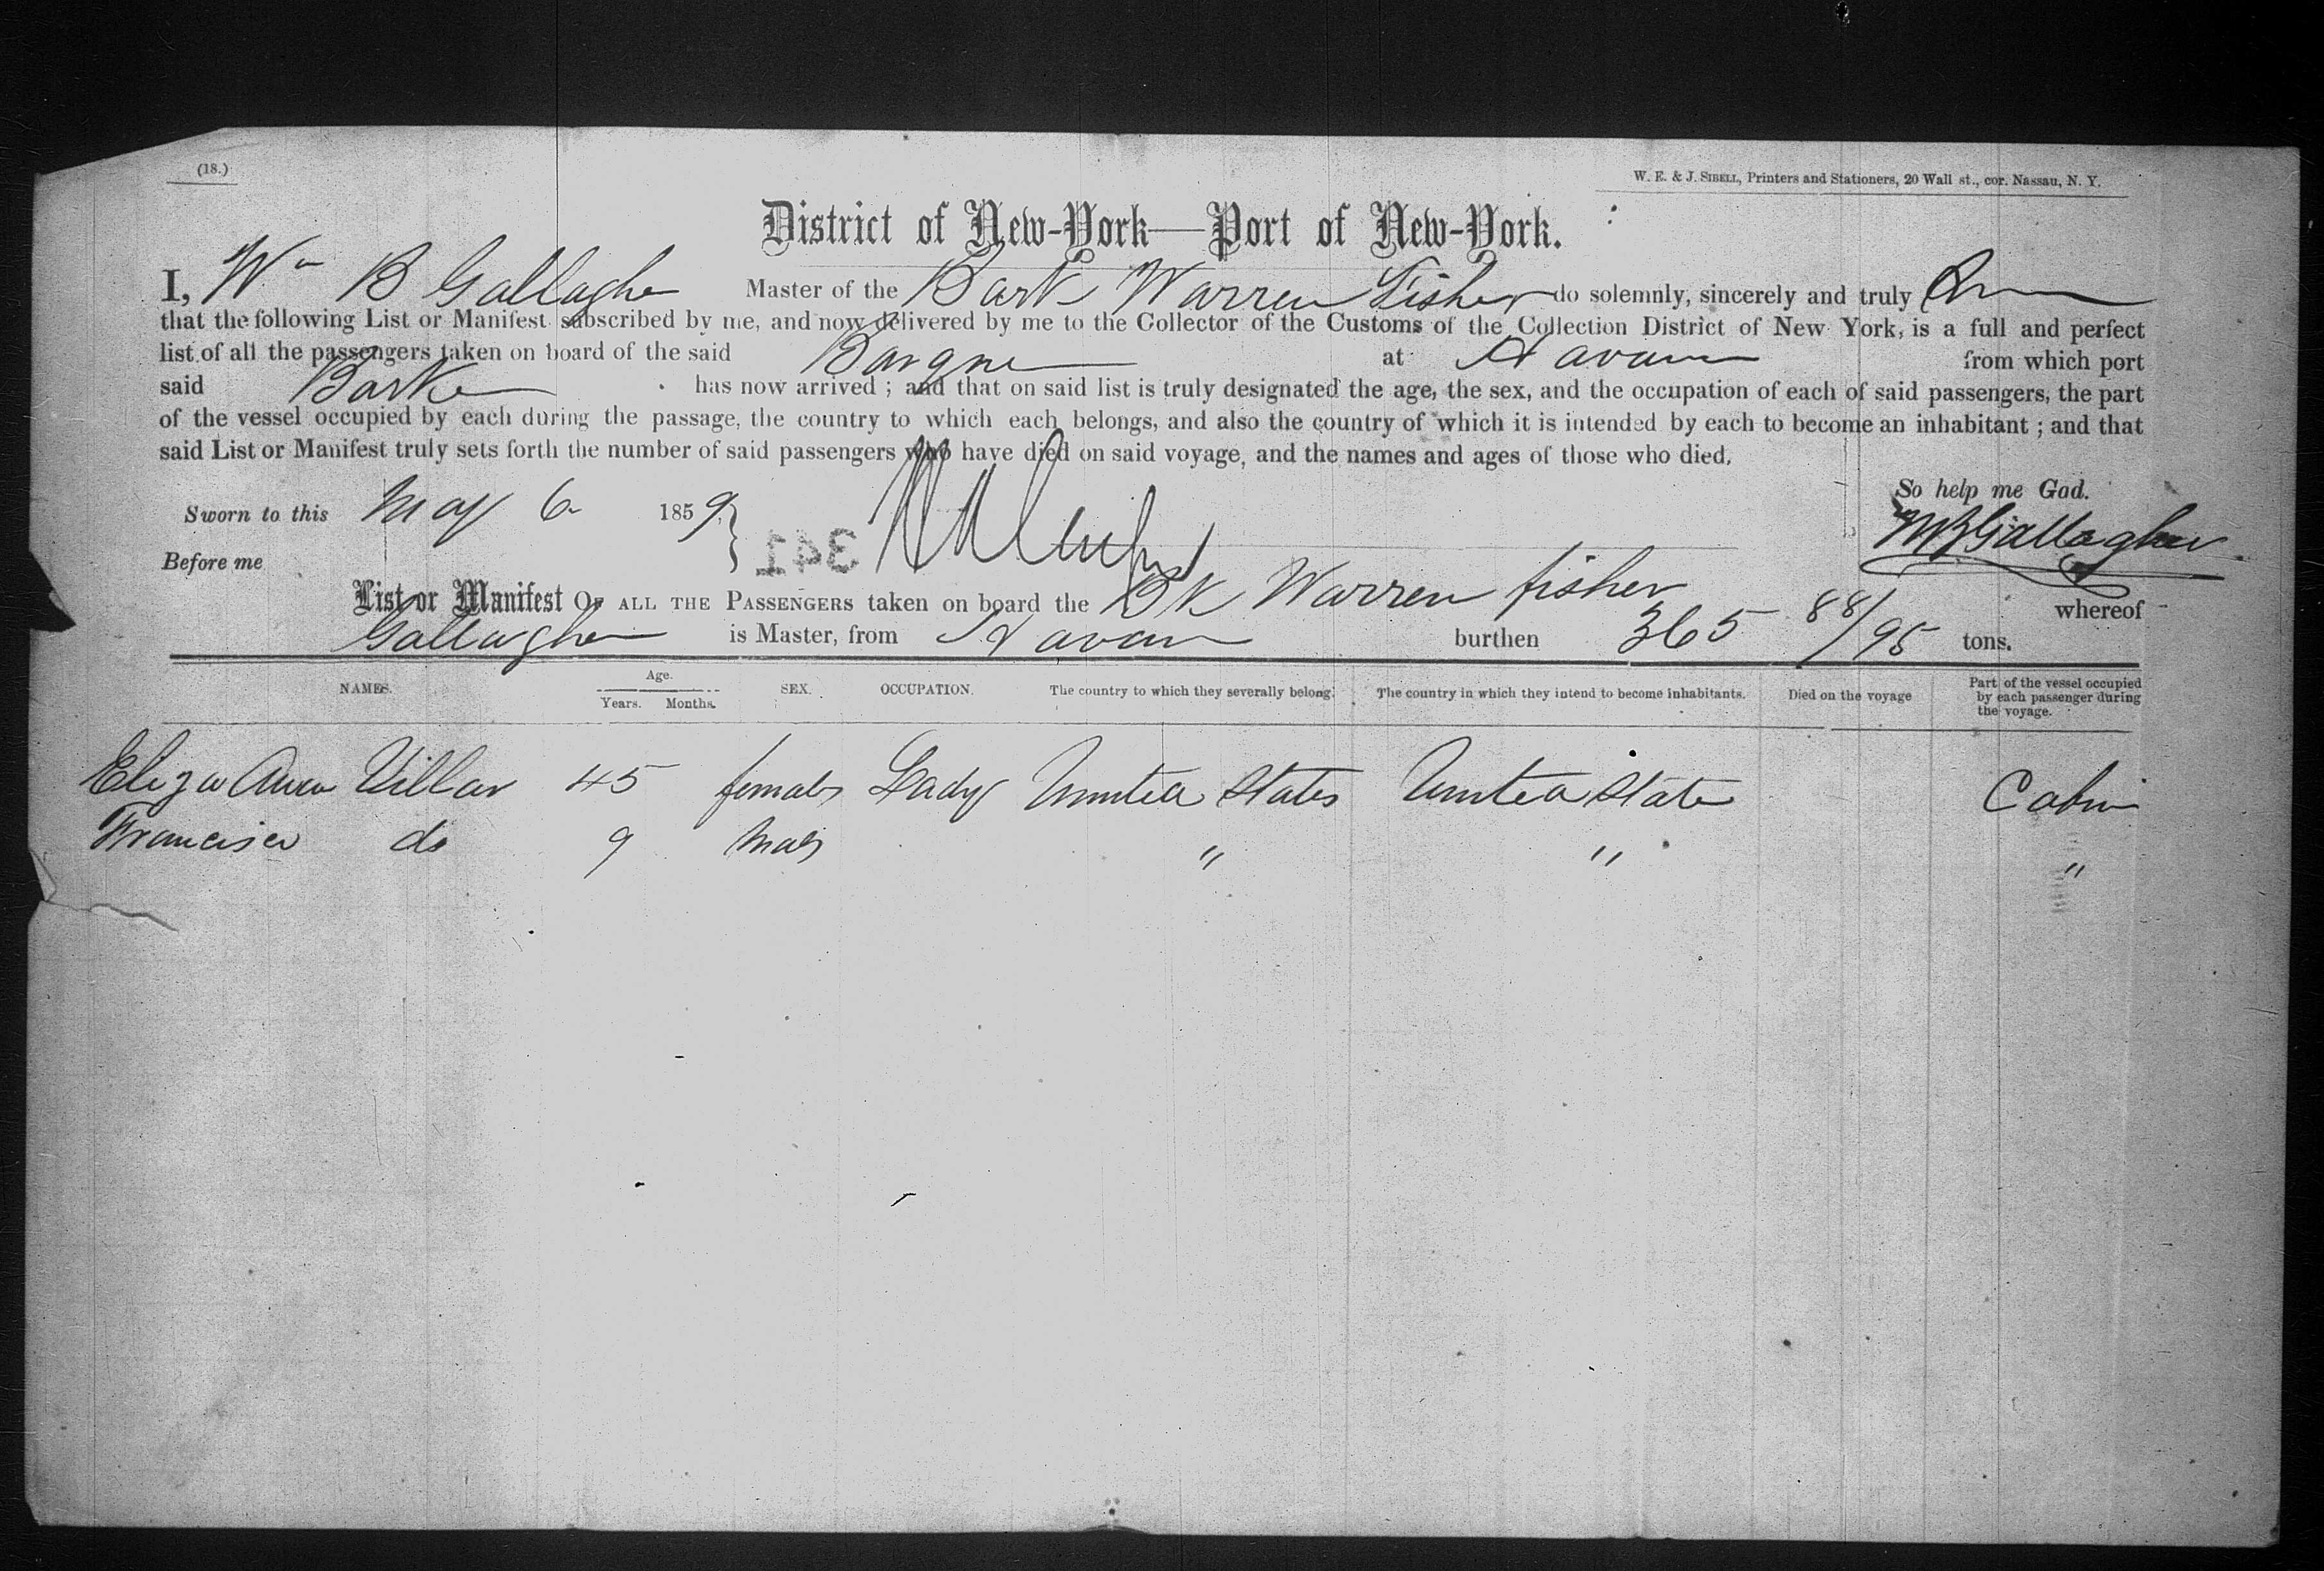 (18.)
W. E. & J. SIBELL, Printers and Stationers, 20 Wall st., cor. Nassau, N. Y.
District of New-York—Port of New-York.
I, Wm B Gallagher Master of the Bark Warren Fisher do solemnly, sincerely and truly
that the following List or Manifest subscribed by me, and now delivered by me to the Collector of the Customs of the Collection District of New York, is a full and perfect
list of all the passengers taken on board of the said Barque at Havana from which port
said Barke has now arrived ; and that on said list is truly designated the age, the sex, and the occupation of each of said passengers, the part
of the vessel occupied by each during the passage, the country to which each belongs, and also the country of which it is intended by each to become an inhabitant ; and that
said List or Manifest truly sets forth the number of said passengers who have died on said voyage, and the names and ages of those who died.
So help me God.
Sworn to this May 6 1859
WB Gallagher
Before me
341
List or Manifest OF ALL THE PASSENGERS taken on board the Bk Warren fisher whereof
Gallagher is Master, from Havana burthen 365 88/95 tons.
NAMES. Age. Years. Months. SEX. OCCUPATION. The country to which they severally belong. The country in which they intend to become inhabitants. Died on the voyage Part of the vessel occupied by each passenger during the voyage.
Eliza Ann Villar 45 female Lady United States United States Cabin
Francisco do 9 Male " " "